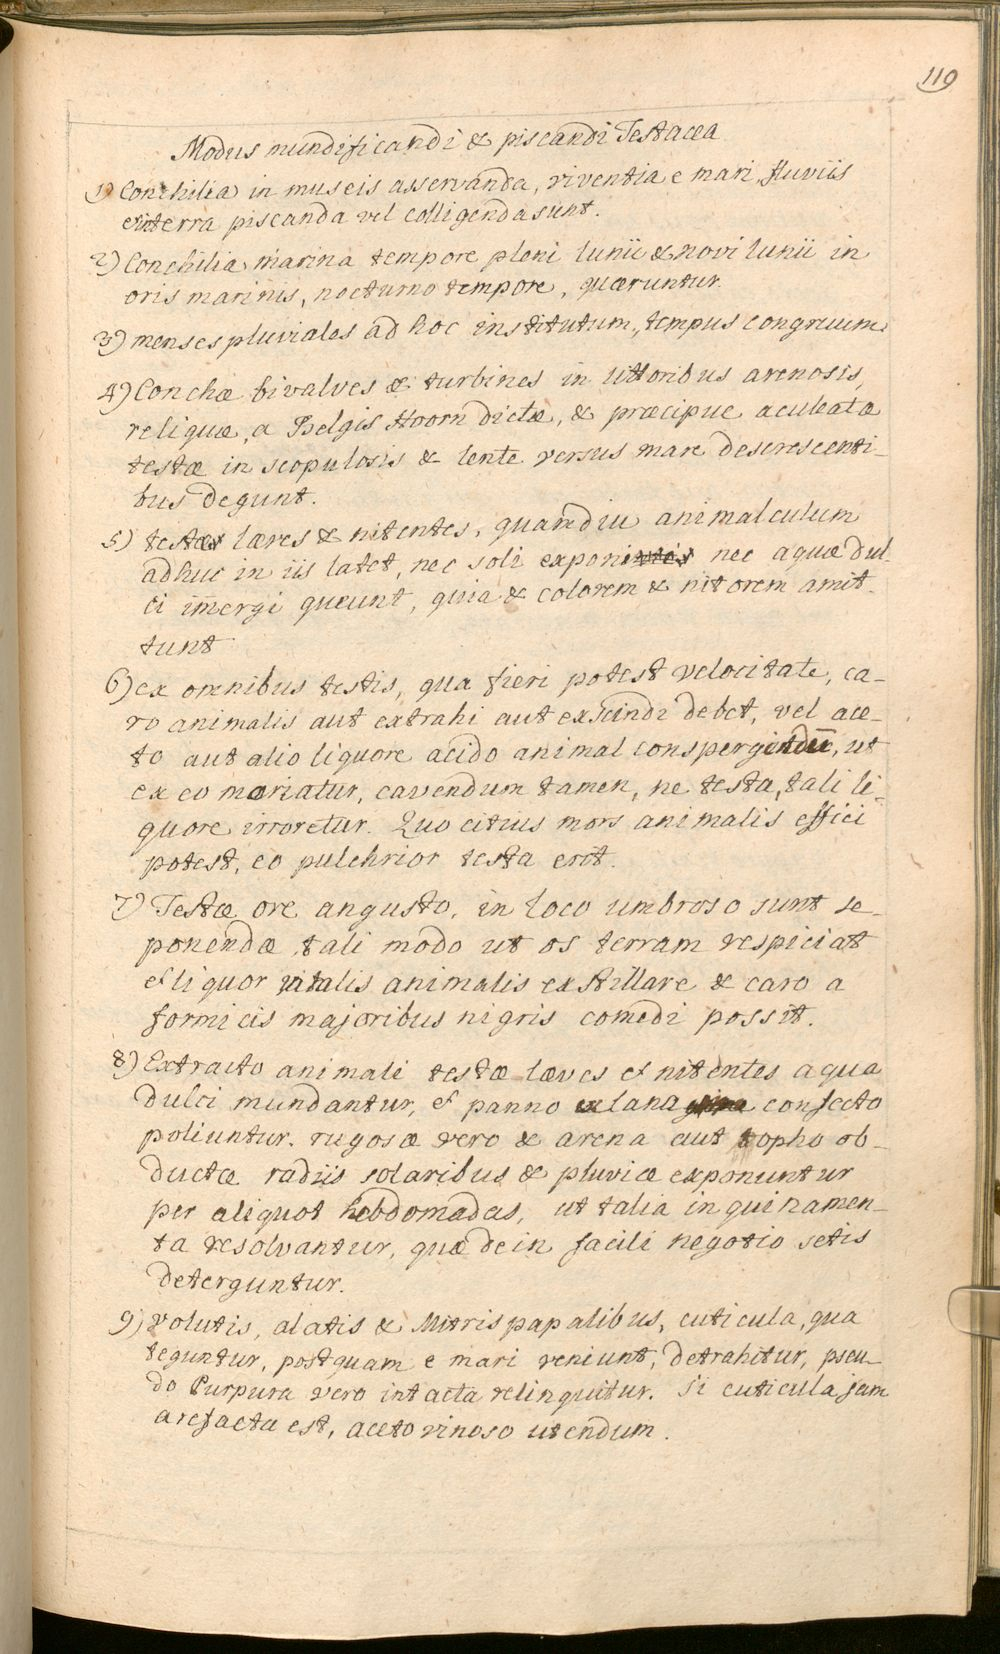 119
Modus mundificandi & piscandi Testacea
1) Conchilia in museis asservanda, viventia e mari, fluviis
terra piscanda vel colligenda sunt.
2) Conchilia marina tempore pleni lunii & novi lunii in
oris marinis, nocturno tempore, quæruntur.
3) menses pluviales ad hoc institutum, tempus congruum.
4) Conchæ bivalves & turbines in littoribus arenosis,
reliquæ, a Belgis Hoorn dictæ, & præcipue aculeatæ
testæ in scopulosis & lente versus mare descrescenti-
bus degunt.
5) testæ læves & nitentes, quamdiu animalculum
adhuc in iis latet, nec soli exponi nec aquæ dul-
ci im̄ergi queunt, quia & colorem & nitorem amit-
tunt
6) ex omnibus testis, qua fieri potest velocitate, ca-
ro animalis aut extrahi aut exscindi debet, vel ace-
to aut alio liquore acido animal conspergendū, ut
ex eo moriatur, cavendum tamen, ne testa, tali li-
quore irroretur. Quo citius mors animalis effici
potest, eo pulchrior testa erit.
7) Testæ ore angusto, in loco umbroso sunt se-
ponendæ, tali modo ut os terram respiciat
et liquor vitalis animalis exstillare & caro a
formicis majoribus nigris comedi possit.
8) Extracto animali testæ læves et nitentes aqua
dulci mundantur, et panno ex lana confecto
poliuntur. rugosæ vero & arena aut topho ob-
ductæ radiis solaribus & pluviæ exponuntur
per aliquot hebdomadas, ut talia inquinamen-
ta resolvantur, quæ dein facili negotio setis
deterguntur.
9) volutis, alatis & Mitris papalibus, cuticula, qua
teguntur, postquam e mari veniunt, detrahitur, pseu-
do Purpura vero intacta relinquitur. Si cuticula jam
arefacta est, aceto vinoso utendum.